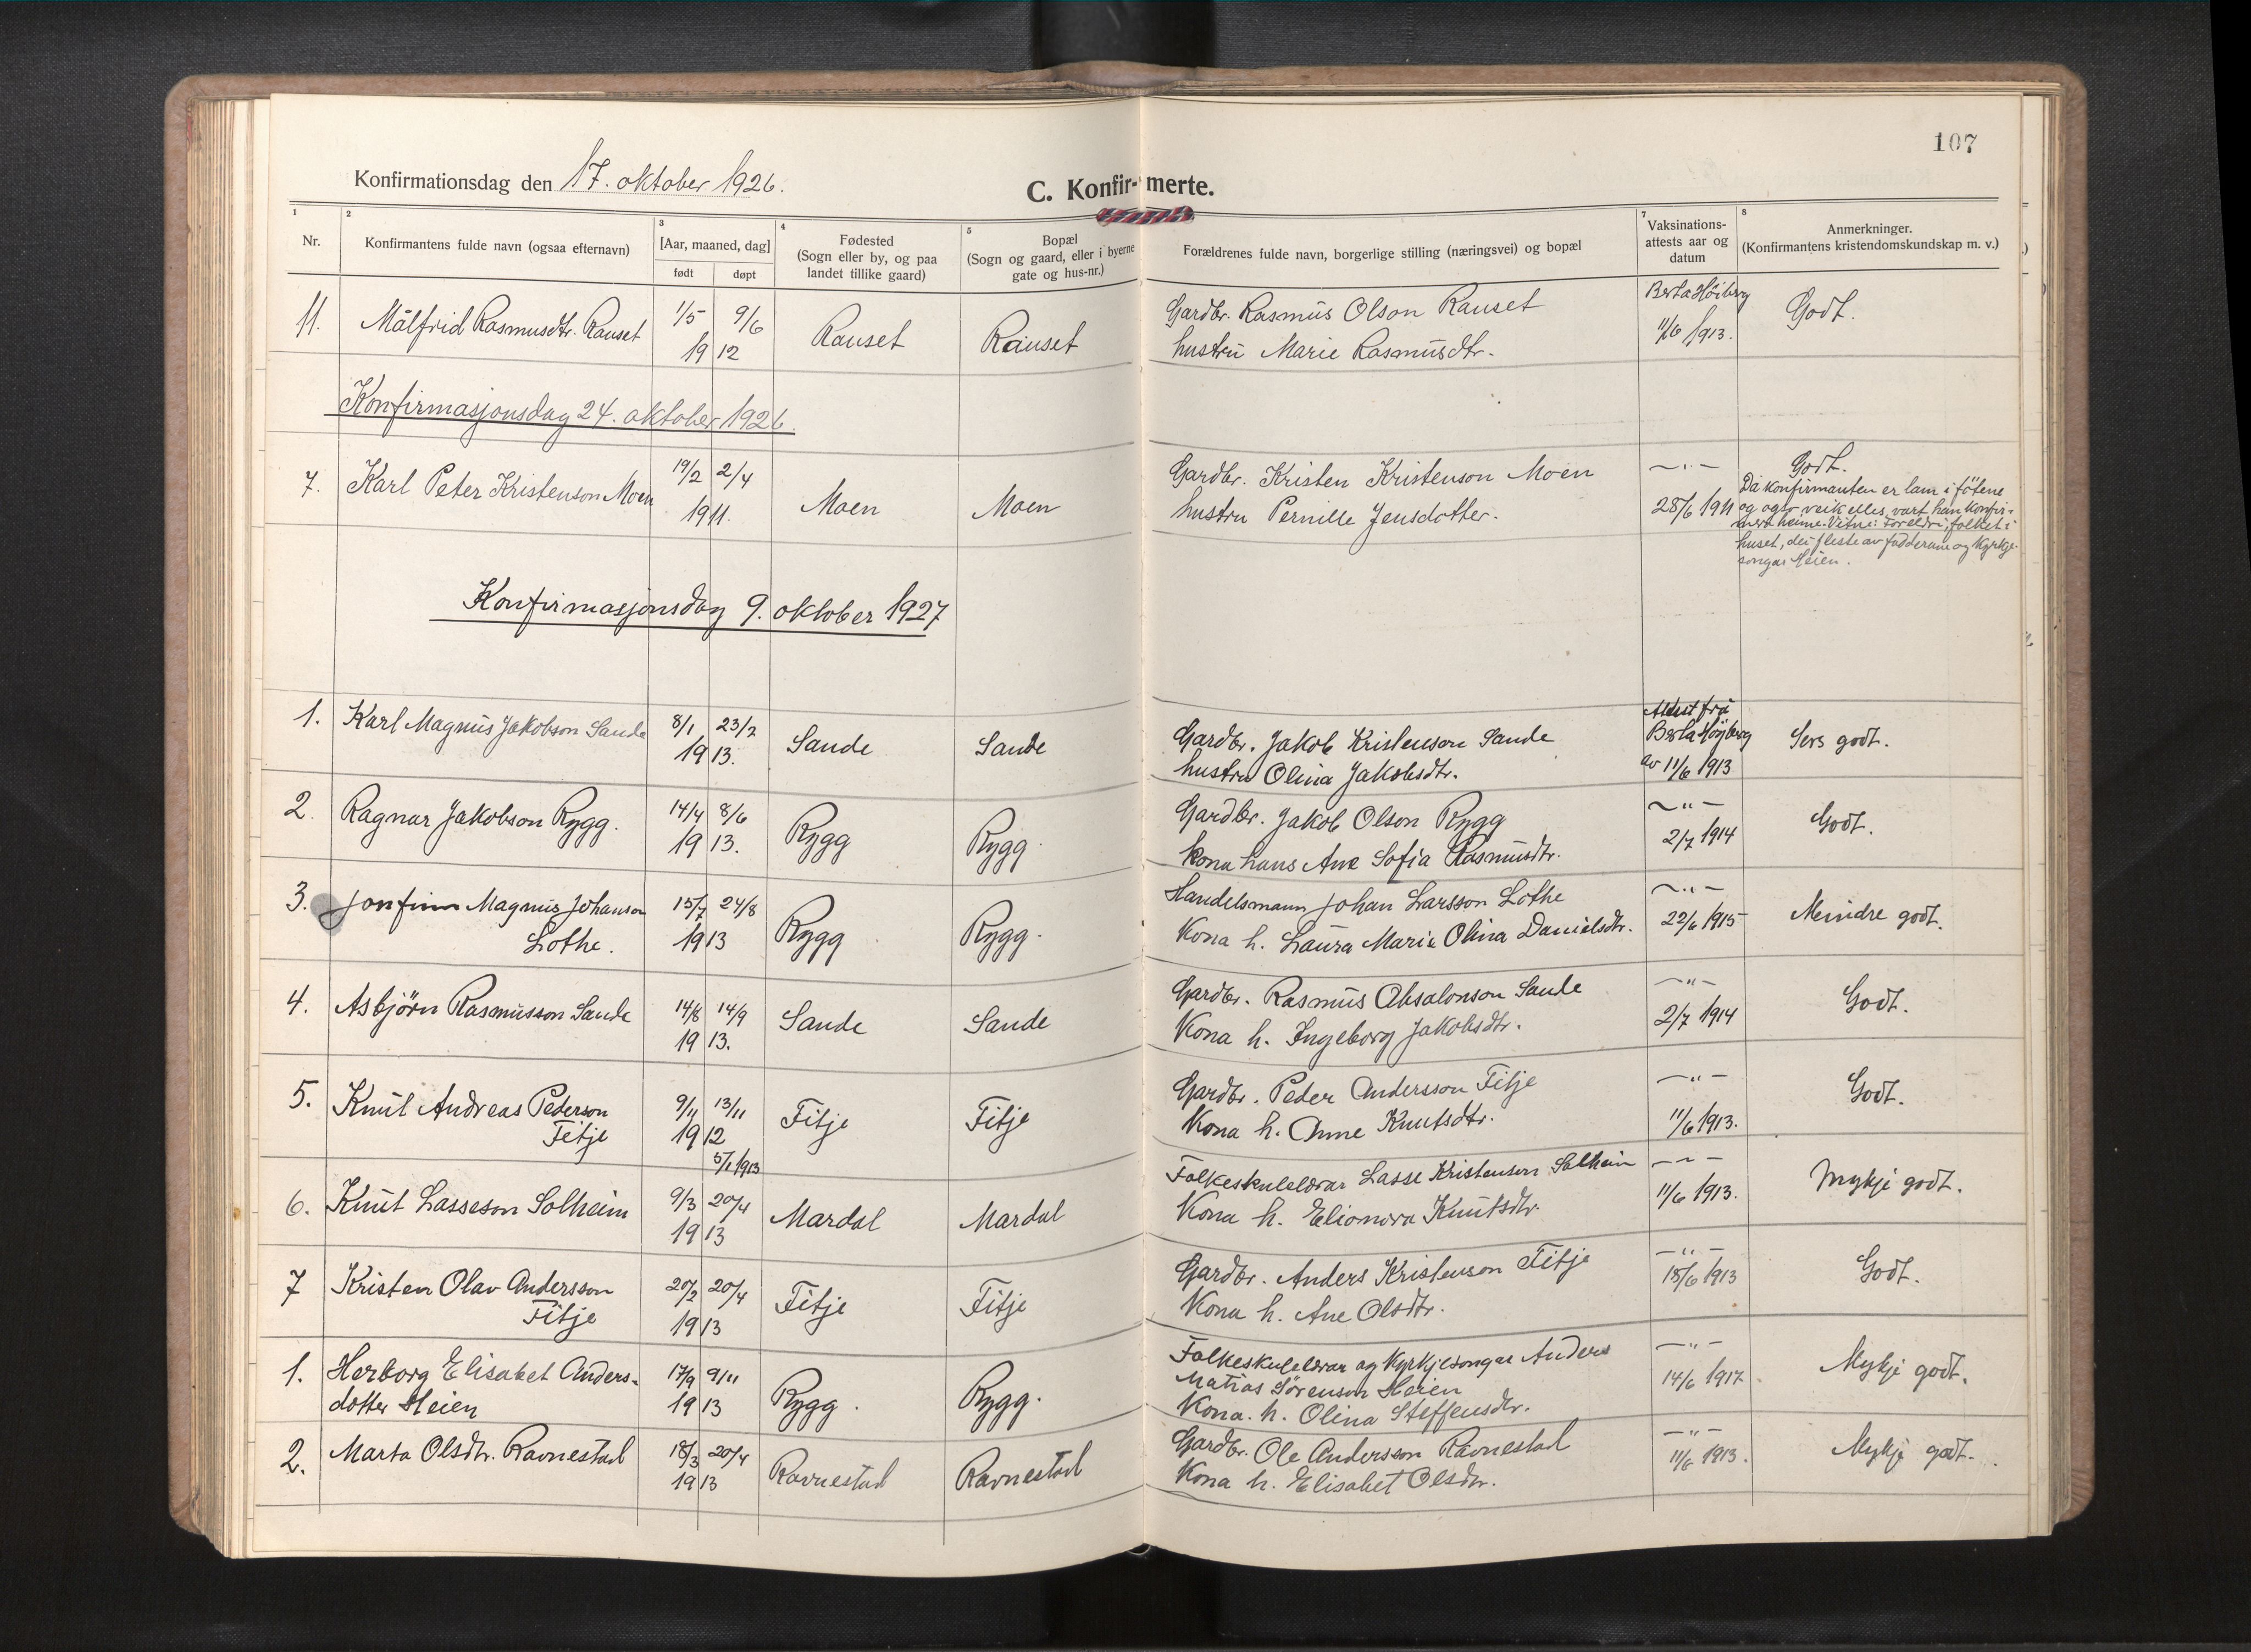 107
Konfirmationsdag den 17. oktober 1926.
C. Konfir- merte.
1 2 3 4 5 7 8
Nr.
Konfirmantens fulde navn (ogsaa efternavn)
[Aar, maaned, dag]
født døpt
Fødested
(Sogn eller by, og paa
landet tillike gaard)
Bopæl
(Sogn og gaard, eller i byerne
gate og hus-nr.)
Forældrenes fulde navn, borgerlige stilling (næringsvei) og bopæl
Vaksinations-
attests aar og
datum
Anmerkninger.
(Konfirmantens kristendomskundskap m. v.)
11. Målfrid Rasmusdtr. Rauset 1/5 9/6 1912 Rauset Rauset
Gardbr. Rasmus Olson Rauset
hustru Marie Rasmusdtr.
Berta Höiberg
11/6 1913.
Godt.
Konfirmasjonsdag 24. oktober 1926.
7. Karl Peter Kristenson Moen 19/2 2/4 1911. Moen Moen
Gardbr. Kristen Kristenson Moen
hustru Pernille Jensdotter.
— " —
28/6 1911
Godt.
Da konfirmanten er lam i fötene
og veik elles, vart han konfir-
mert heime. Vitne: Foreldri, folket i
huset, dei fleste av fadderane og Kyrkje-
songar Heien.
Konfirmasjonsdag 9. oktober 1927
1. Karl Magnus Jakobson Sande 8/1 23/2 1913. Sande Sande
Gardbr. Jakob Kristenson Sande
hustru Olina Jakobsdtr.
Attest frå
Berta Höjberg
av 11/6 1913
Sers godt.
2. Ragnar Jakobson Rygg. 14/4 8/6 1913. Rygg Rygg
Gardbr. Jakob Olson Rygg
kona hans Ane Sofia Rasmusdtr.
— " —
2/7 1914
Godt.
3. Jonfinn Magnus Johanson
Lothe. 15/7 24/8 1913 Rygg Rygg.
Handelsmann Johan Larsson Lothe
Kona h. Laura Marie Olina Danielsdtr.
— " —
22/6 1915
Mindre godt.
4. Asbjörn Rasmusson Sande 14/8 14/9 1913. Sande Sande
Gardbr. Rasmus Absalonson Sande
Kona h. Ingeborg Jakobsdtr.
— " —
2/7 1914
Godt.
5. Knut Andreas Pederson
Fitje 9/11 13/11 1912 Fitje Fitje
5/1 1913
Gardbr. Peder Andersson Fitje
Kona h. Anne Knutsdtr.
— " —
11/6 1913.
Godt.
6. Knut Lasseson Solheim 9/3 20/4 1913 Mardal Mardal
Folkeskulelærar Lasse Kristenson Solheim
Kona h. Elionora Knutsdtr.
— " —
11/6 1913.
Mykje godt.
7 Kristen Olav Andersson
Fitje 20/2 20/4 1913 Fitje Fitje
Gardbr. Anders Kristenson Fitje
Kona h. Ane Olsdtr.
— " —
18/6 1913
Godt.
1. Herborg Elisabet Anders-
dotter Heien 17/9 9/11 1913 Rygg. Rygg.
Folkeskulelærar og Kyrkjesongar Anders
Matias Sørenson Heien
Kona. h. Olina Steffensdtr.
— " —
14/6 1917
Mykje godt.
2. Marta Olsdtr. Ravnestad 18/3 20/4 1913 Ravnestad Ravnestad
Gardbr. Ole Andersson Ravnestad
Kona h. Elisabet Olsdtr.
— " —
11/6 1913.
Mykje godt.